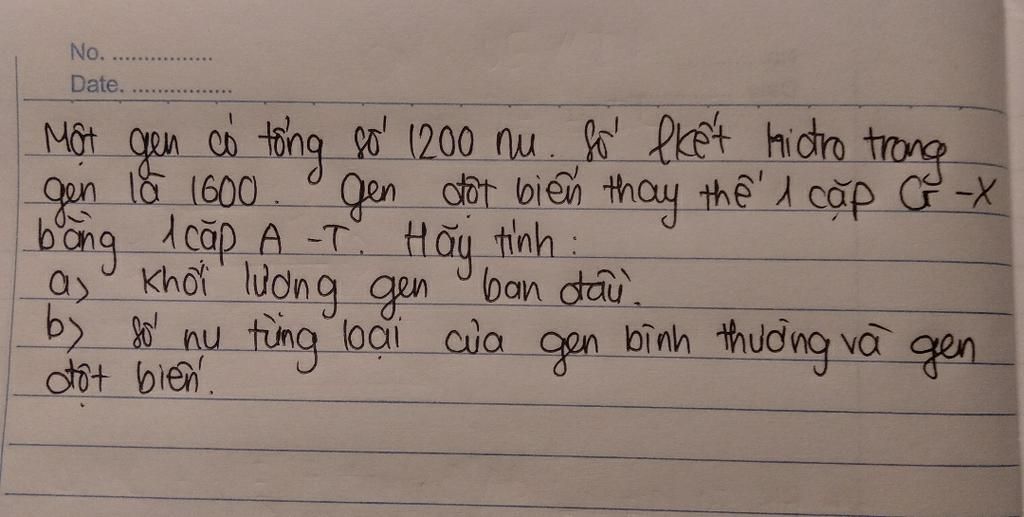 No. ................
Date. ................
Một gen có tổng số 1200 nu. Số lkết hidro trong
gen là 1600. Gen đột biến thay thế 1 cặp G-X
bằng 1 cặp A-T. Hãy tính:
a) Khối lượng gen ban đầu.
b) Số nu từng loại của gen bình thường và gen
đột biến.